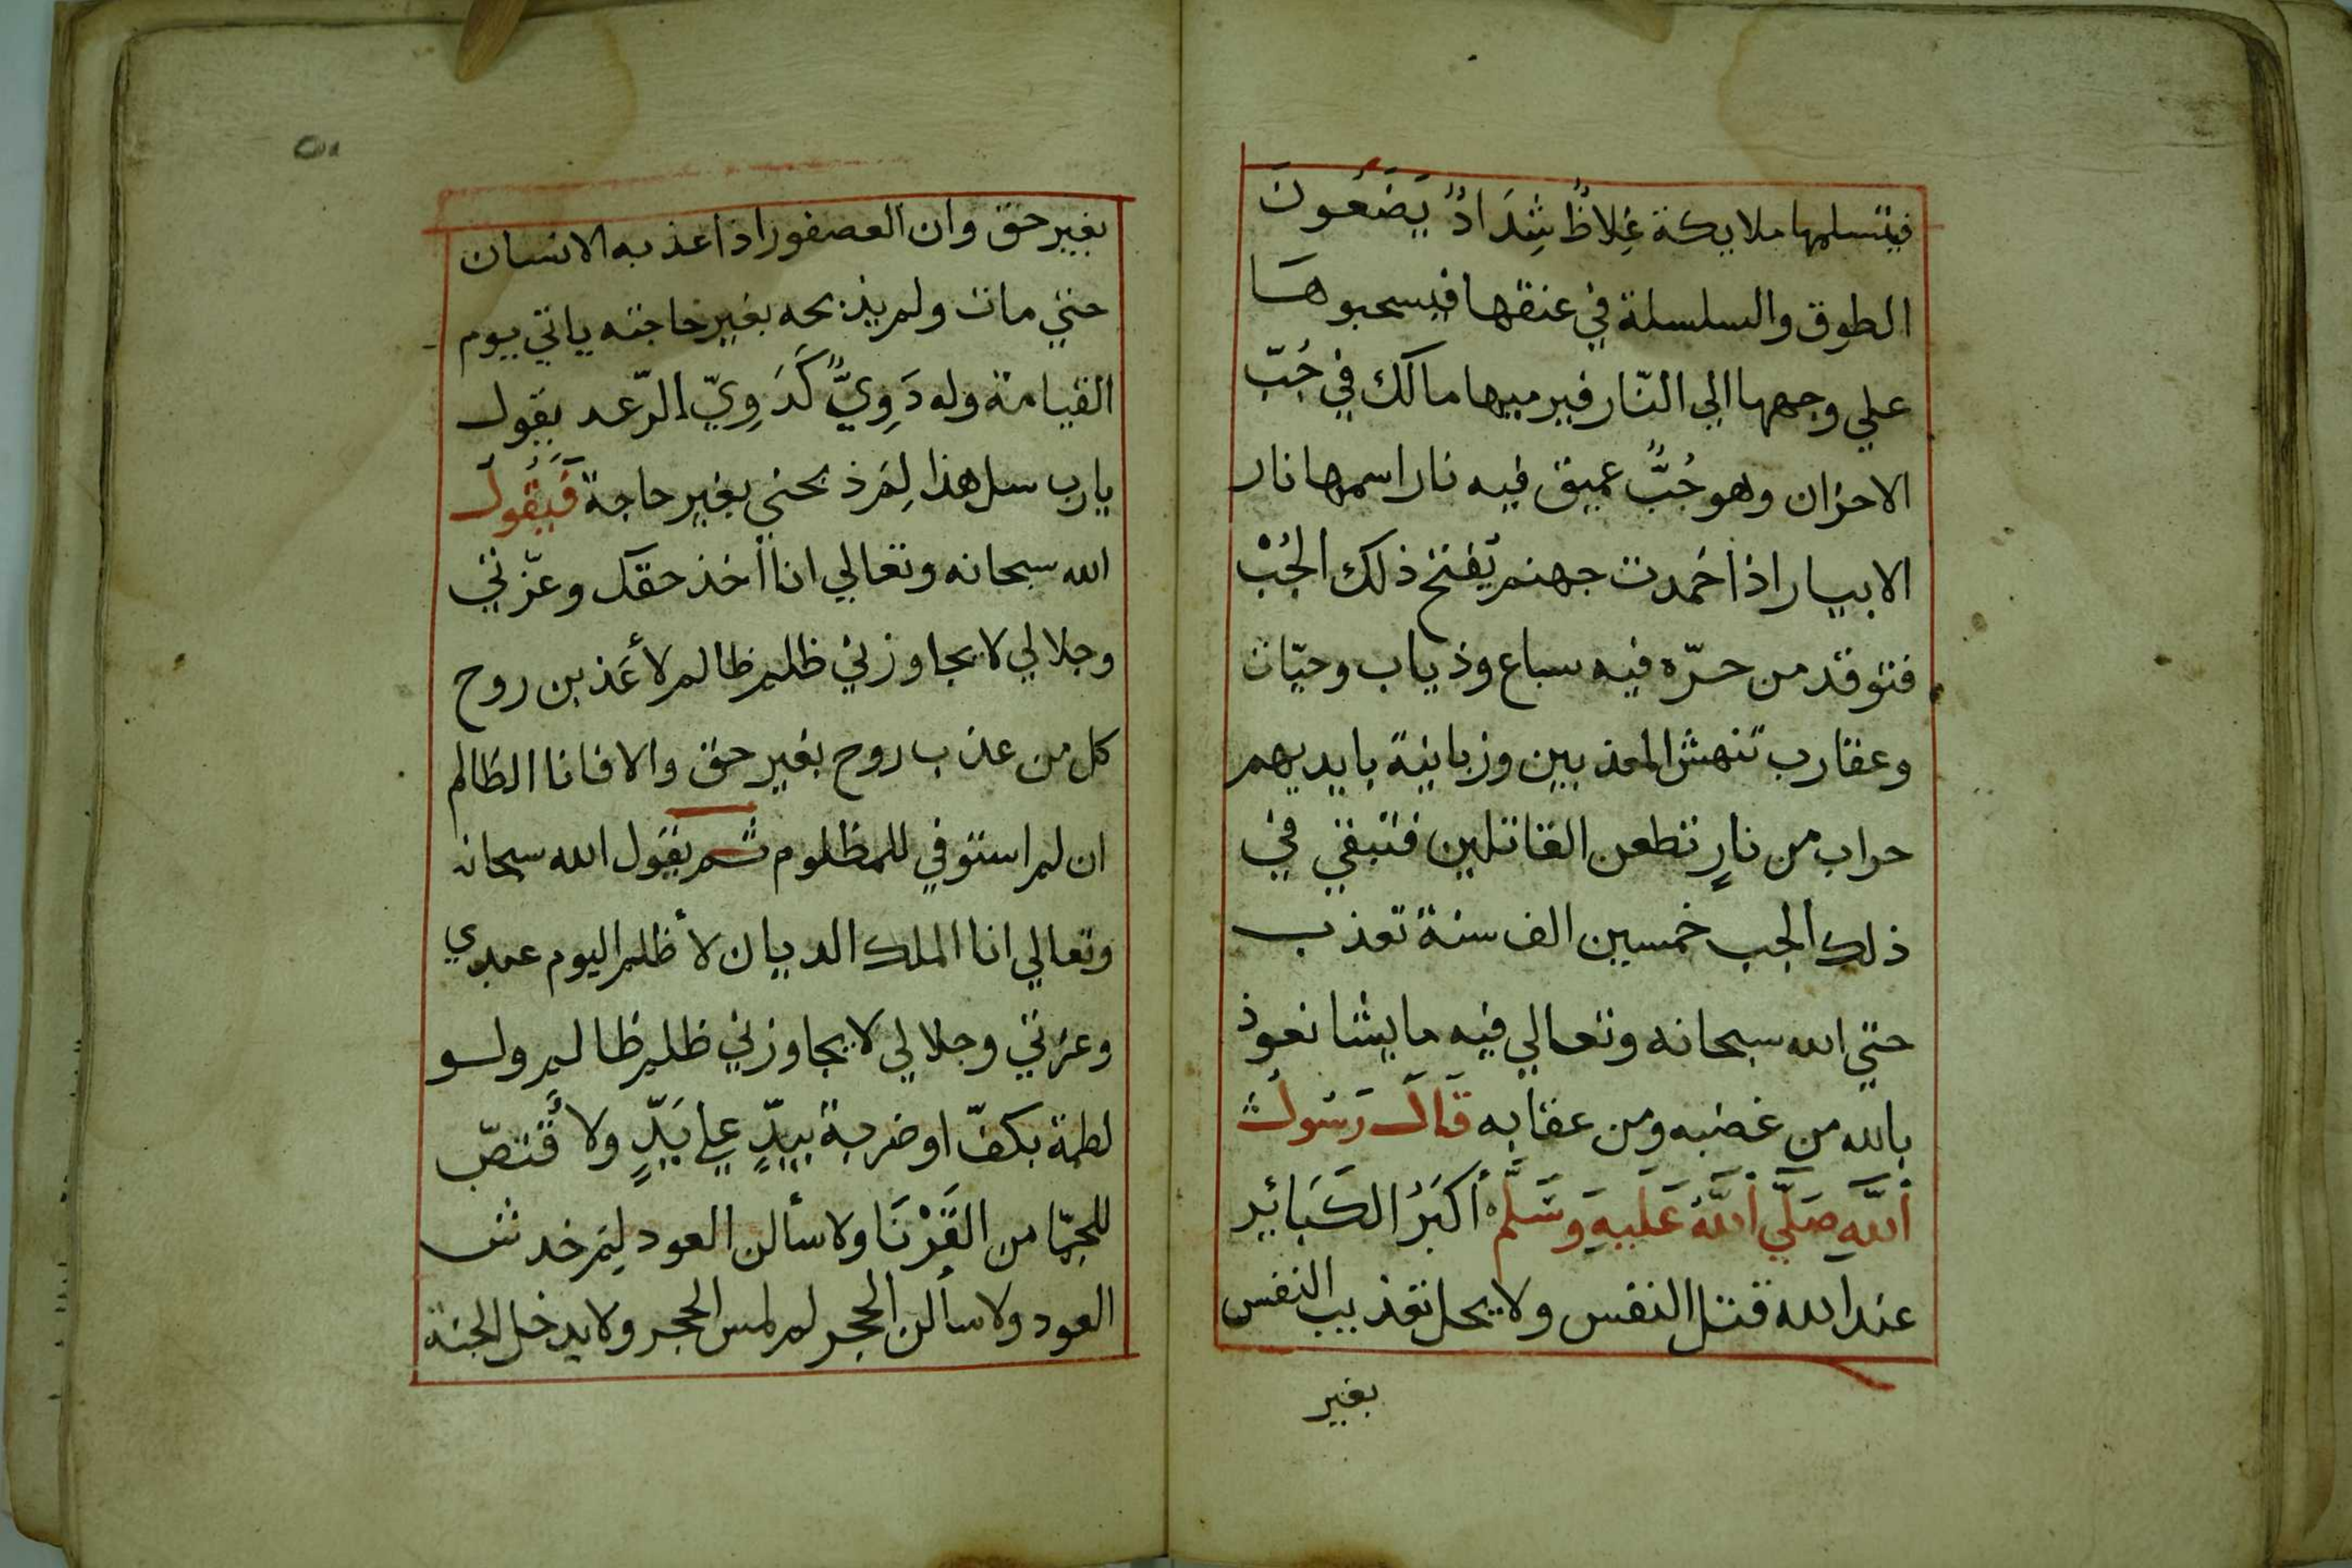 فيتسلمها ملايكة غِلاظٌ شِدَادٌ يَضَعُونَ
الطوق والسلسلة في عنقها فيسحبوها
علي وجهها الي النّار فيرميها مالك في جُبّ
الاحزان وهو جُبٌّ عميق فيه نار اسمها نار
الابيار اذا خمدت جهنم يُفتح ذلك الجُبْ
فتوقد من حرّه فيه سباع وذياب وحيّات
وعقارب تنهش المعذبين وزبانية بايديهم
حراب من نارٍ تطعن القاتلين فتبقي في
ذلك الجب خمسين الف سنة تعذب
حتي الله سبحانه وتعالي فيه ما يشا نعوذ
بالله من غضبه ومن عقابه قَالَ رَسُولُ
اللَّهِ صَلَّي اللَّهُ عَلَيهِ وَسَلَّم أكبَرُ الكَبَائِر
عند الله قتل النفس ولا يحل تعذيب النفس
بغير
٥١
بغير حق وان العصفور اذا عذبه الانسان
حتي مات ولم يذبحه بغير حاجته ياتي يوم
القيامة وله دَوِيٌّ كَدَوِيّ الرّعد يقول
يارب سل هذا لِمَ ذبحني بغير حاجة فَيَقُولُ
الله سبحانه وتعالي انا أخذ حقك وعزّتي
وجلالي لا يجاوزني ظلم ظالم لأعَذبن روح
كل من عذب روح بغير حق والا فانا الظالم
ان لم استوفي للمظلوم ثم يقول الله سبحانه
وتعالي انا الملك الديان لا أظلم اليوم عبدي
وعزتي وجلالي لا يجاوزني ظلم ظالم ولو
لطمة بكفّ او ضربة بيدٍّ علي يَدٍّ ولا قُتصّ
للجمّا من القَرْنَا ولا سألن العود لِمَ خدش
العود ولا سألن الحجر لم لمس الحجر ولا يدخل الجنة